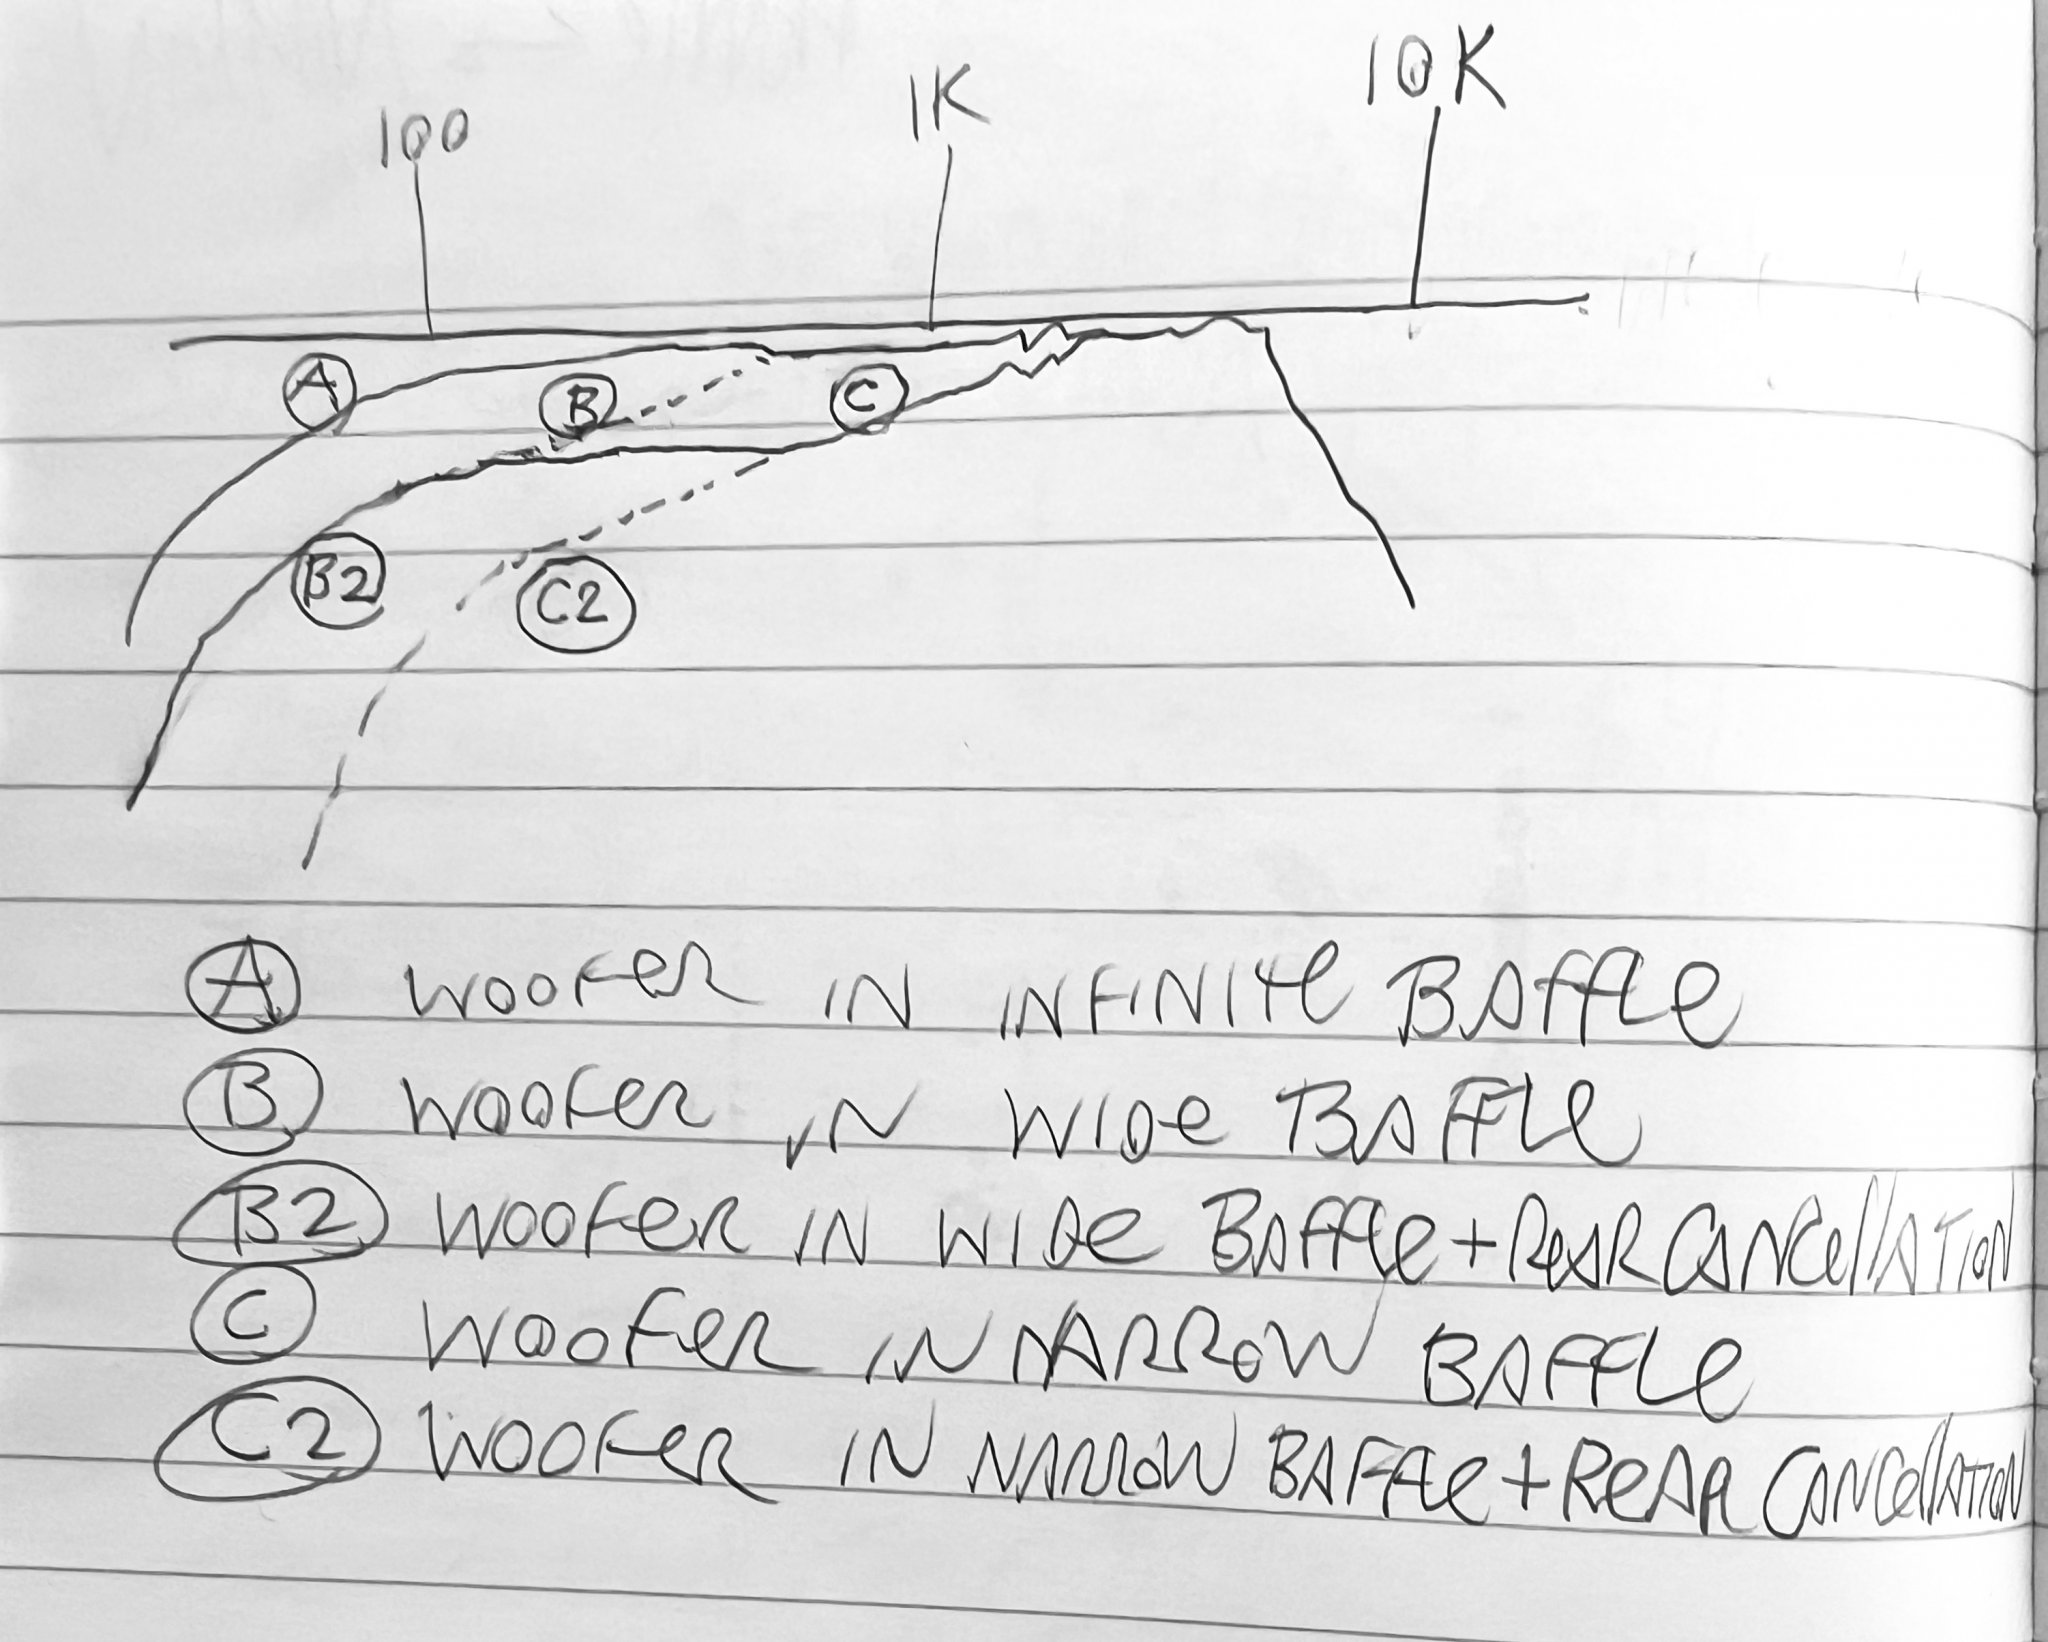 100 1K 10K
A B C
B2 C2
A WOOFER IN INFINITE BAFFLE
B WOOFER IN WIDE BAFFLE
B2 WOOFER IN WIDE BAFFLE + REAR CANCELLATION
C WOOFER IN NARROW BAFFLE
C2 WOOFER IN NARROW BAFFLE + REAR CANCELLATION